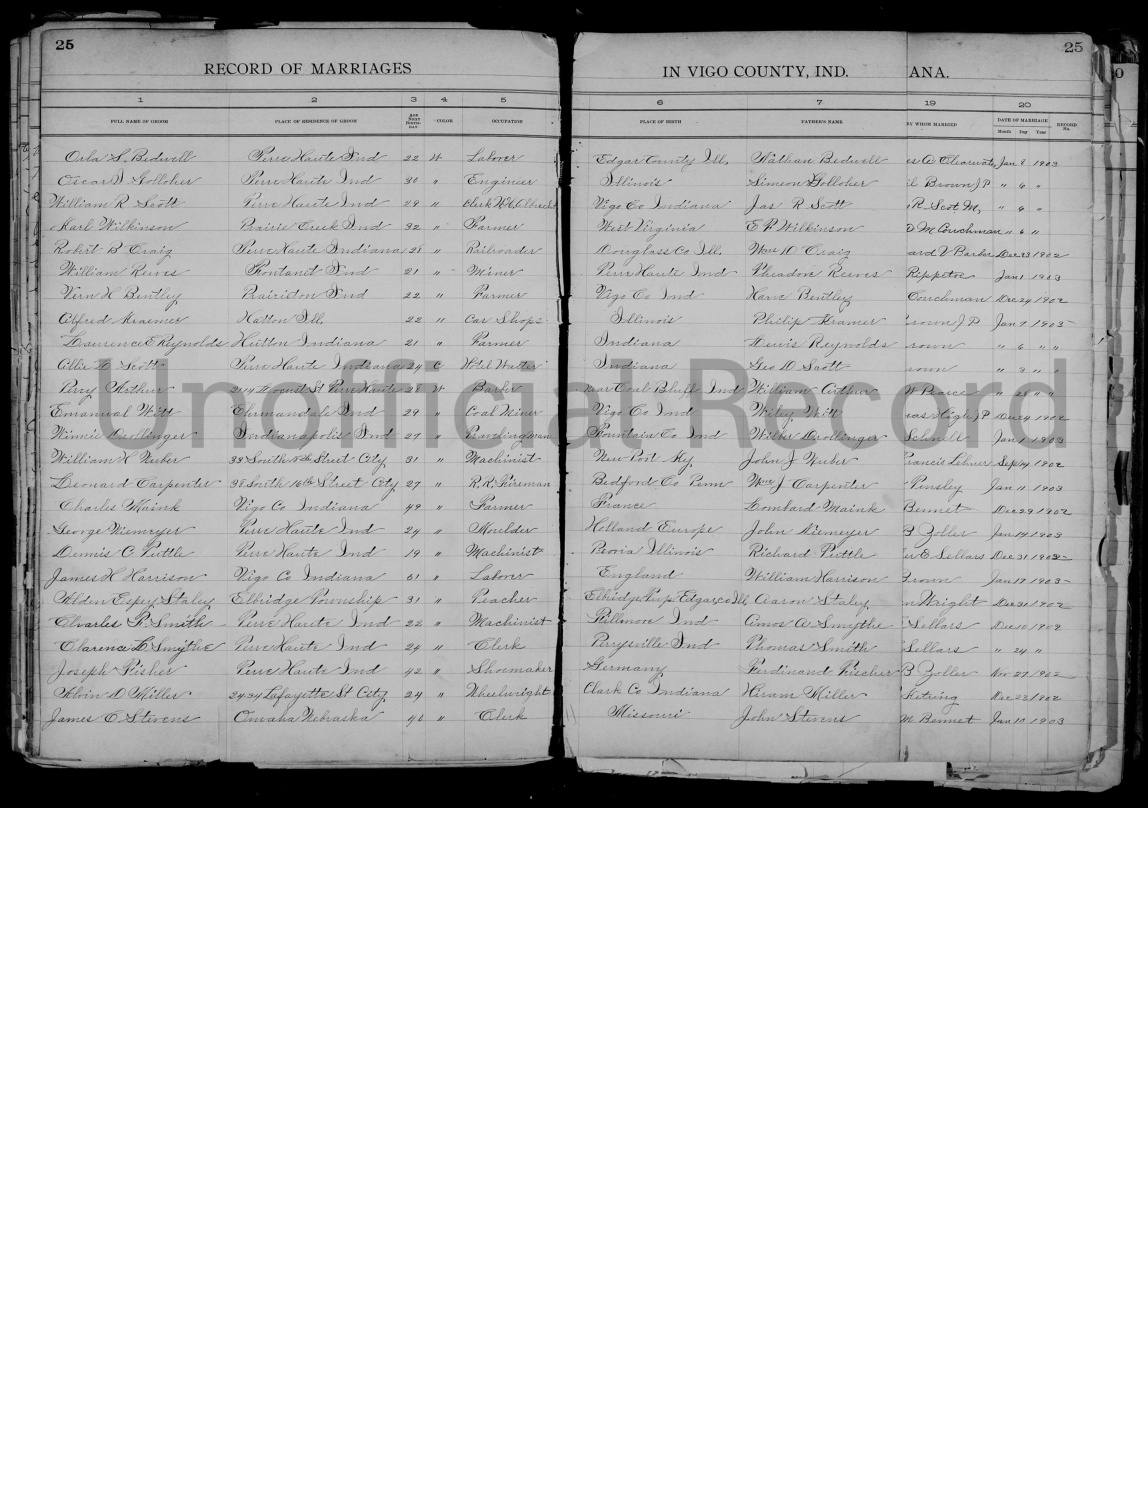 25 25
RECORD OF MARRIAGES IN VIGO COUNTY, IND. ANA.
1 2 3 4 5 6 7 19 20
FULL NAME OF GROOM PLACE OF RESIDENCE OF GROOM AGE NEXT BIRTH-DAY COLOR OCCUPATION PLACE OF BIRTH FATHER'S NAME BY WHOM MARRIED DATE OF MARRIAGE Month Day Year RECORD No.
Orla S. Bedwell Terre Haute Ind 22 W Laborer Edgar County Ill. Nathan Bedwell es A Clearwater Jan 8 1903
Oscar D Golloher Terre Haute Ind 30 " Engineer Illinois Simeon Golloher Brown J P " 6 "
William R Scott Terre Haute Ind 29 " Clerk W.H. Albrecht Vigo Co Indiana Jas R Scott R Scot M. " 6 "
Karl Wilkinson Prairie Creek Ind 32 " Farmer West Virginia E P Wilkinson M Couchman " 6 "
Robert B Craig Terre Haute Indiana 28 " Railroader Douglass Co Ill. Wm D Craig ard V Barbre Dec 23 1902
William Reeves Fontanet Ind 21 " Miner Terre Haute Ind Theadon Reeves Rippetoe Jan 1 1903
Vern H Bentley Prairieton Ind 22 " Farmer Vigo Co Ind Harve Bentley Couchman Dec 24 1902
Alfred Kraemer Hatton Ill. 22 " Car Shops Illinois Philip Kramer rown J P Jan 7 1903
Lawrence E Reynolds Hutton Indiana 21 " Farmer Indiana Lewis Reynolds rown " 6 " "
Ollie D Scott Terre Haute Indiana 24 C Hotel Waiter Indiana Geo D Scott rown " 3 " "
Percy Arthur 2114 Locust St Terre Haute 28 W Barber near Coal Bluff Ind William Arthur W Pearce " 28 " "
Emanual Witt Ehrmandale Ind 29 " Coal Miner Vigo Co Ind Wiley Witt as High J P Dec 24 1902
Winnie Drollinger Indianapolis Ind 27 " Traveling man Fountain Co Ind Wilber Drollinger Schnell Jan 1 1903
William H Huber 33 South 8th Street City 31 " Machinist New Port Ky John J Huber Francis Lehner Sep 24 1902
Leonard Carpenter 38 South 16th Street City 27 " R.R. Fireman Bedford Co Penn Wm J Carpenter Tinsley Jan 11 1903
Charles Maink Vigo Co Indiana 49 " Farmer France Lombard Maink Bennet Dec 29 1902
George Niemeyer Terre Haute Ind 24 " Moulder Holland Europe John Niemeyer B Zoller Jan 14 1903
Dennis C Tuttle Terre Haute Ind 19 " Machinist Peoria Illinois Richard Tuttle er E Sellars Dec 31 1902
James H Harrison Vigo Co Indiana 51 " Laborer England William Harrison Brown Jan 17 1903
Alden Espey Staley Elbridge Township 31 " Teacher Elbridge Twp. Edgar, co Ill, Aaron Staley n Wright Dec 31 1902
Charles F. Smith Terre Haute Ind 22 " Machinist Fillmore Ind Amos A Smythe Sellars Dec 10 1902
Clarence L Smythe Terre Haute Ind 24 " Clerk Perrysville Ind Thomas Smith Sellars " 24 "
Joseph Fisher Terre Haute Ind 42 " Shoemaker Germany Ferdinand Fischer B Zoller Nov 27 1902
Alvin D Miller 2434 Lafayette St City 24 " Wheelwright Clark Co Indiana Hiram Miller Ketring Dec 23 1902
James O Stevens Omaha Nebraska 40 " Clerk Missouri John Stevens M Bennet Jan 10 1903
Unofficial Record